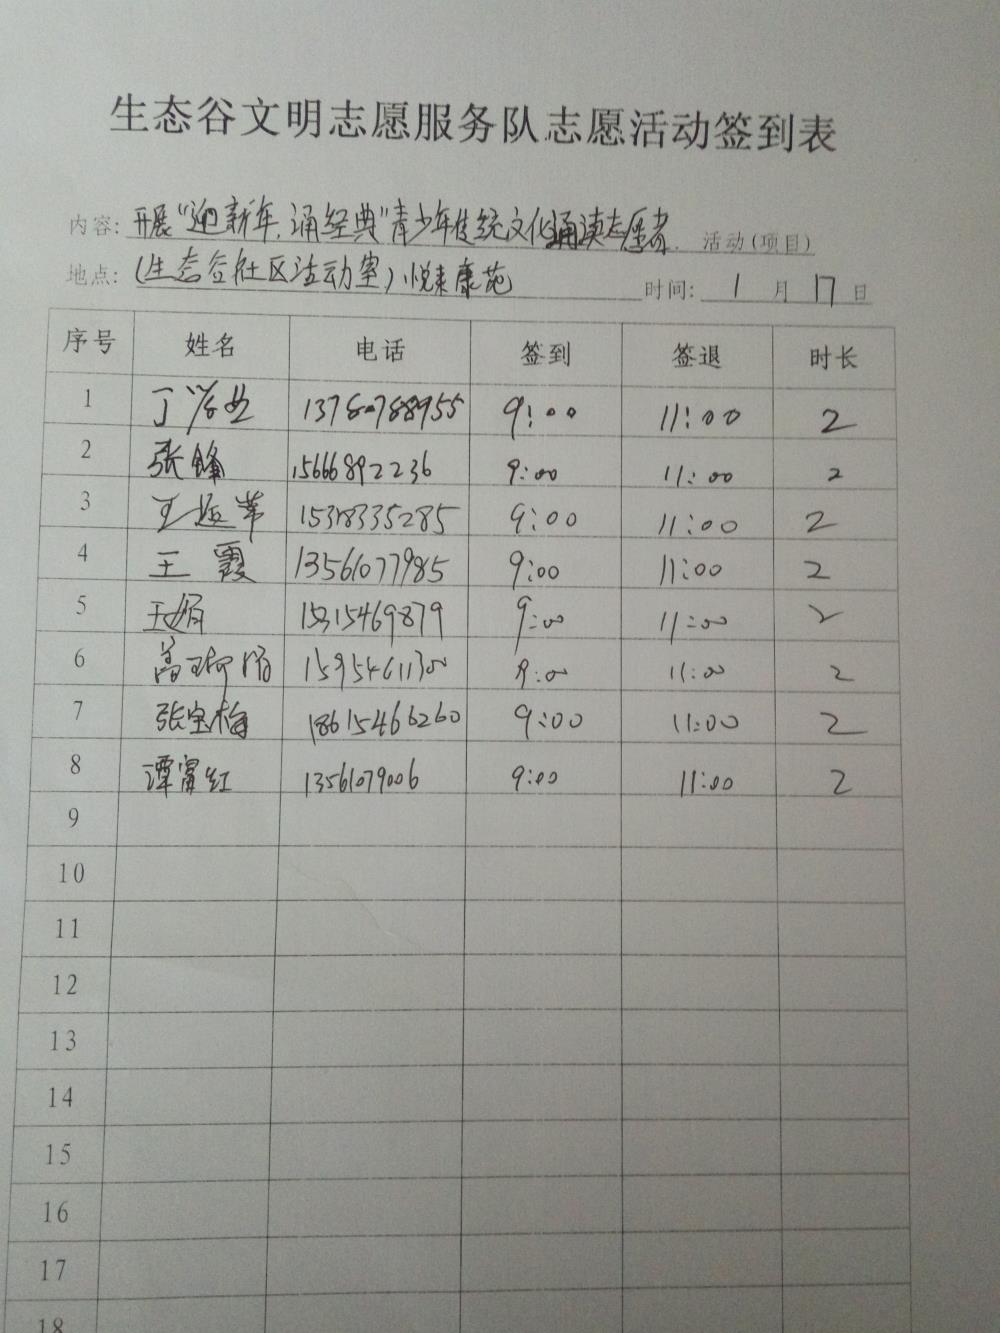 生态谷文明志愿服务队志愿活动签到表
内容: 开展“迎新年、诵经典”青少年传统文化诵读志愿者. 活动(项目)
地点: (生态谷社区活动室)悦来康苑 时间: 1 月 17 日
序号 姓名 电话 签到 签退 时长
1 丁 13780788955 9:00 11:00 2
2 张锋 15666892236 9:00 11:00 2
3 王 15318335285 9:00 11:00 2
4 王霞 13561077985 9:00 11:00 2
5 王娟 15315469879 9:00 11:00 2
6 15954611300 9:00 11:00 2
7 张宝梅 18615466260 9:00 11:00 2
8 谭富红 13561079006 9:00 11:00 2
9
10
11
12
13
14
15
16
17
18